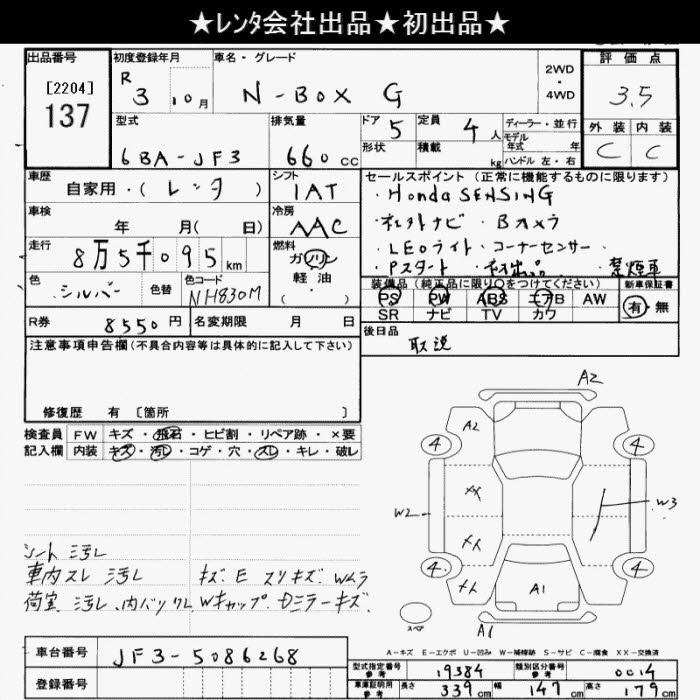 ★レンタ会社出品★初出品★
出品番号 初度登録年月 車名・グレード 評価点
[2204] R 3 . 10月 N-BOX G 2WD・4WD 3.5
137
型式 排気量 ドア 5 定員 4人 ディーラー・並行 外装 内装
6BA-JF3 660cc 形状 積載 kg モデル年式 年 C C
ハンドル 左・右
車歴 シフト セールスポイント(正常に機能するものに限ります)
自家用・(レンタ) IAT ・Honda SENSING
車検 冷房 ・ネットナビ ・Bカメラ
年 月(日) AAC ・LEDライト・コーナーセンサー・
走行 燃料 ・Pスタート・初出品・禁煙車
8万5千095km ガソリン・軽油 ( )
色 色替 色コード 装備品(純正品に限り○をつけてください) 新車保証書
シルバー NH830M PS PW ABS エアB AW 有・無
SR ナビ TV カワ
R券 8550円 名変期限 月 日 後日品
取説
注意事項申告欄(不具合内容等は具体的に記入して下さい)
修復歴 有 〔箇所 〕
検査員記入欄 FW キズ・飛石・ヒビ割・リペア跡・×要
内装 キズ・汚レ・コゲ・穴・スレ・キレ・破レ
シート 汚レ
車内スレ 汚レ キズ. E スリキズ. Wムラ
荷室 汚レ.内バリワレ Wキャップ. Dミラーキズ.
A2
A2
4 4
XX
W2 W3
XX
4 4
XX A1
スペア
A1
A-キズ E-エクボ U-凹み W-補修跡 S-サビ C-腐食 XX-交換済
車台番号 JF3-5086268
登録番号
型式指定番号参考 19384 類別区分番号参考 0014
車庫証明用参考 長さ 339cm 幅 147cm 高さ 179cm